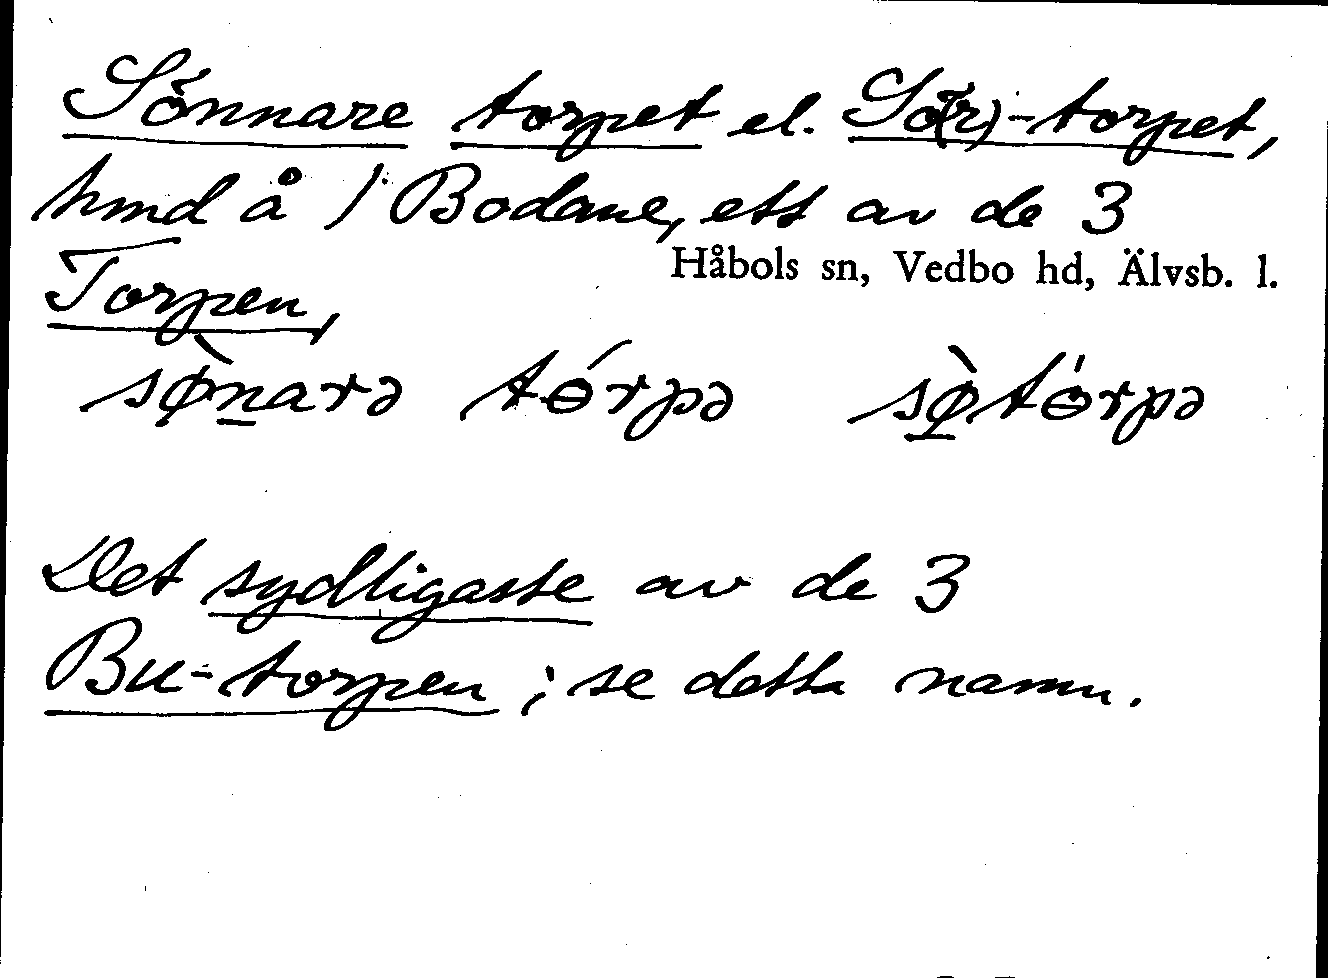 Sönnare torpet el. Sö(r)-torpet,
hmd å 1 Bodane, ett av de 3
Torpen,
Håbols sn, Vedbo hd, Älvsb. l.
sø̀narə tórpə sø̀tórpə
Det sydligaste av de 3
Bu-torpen; se detta namn.